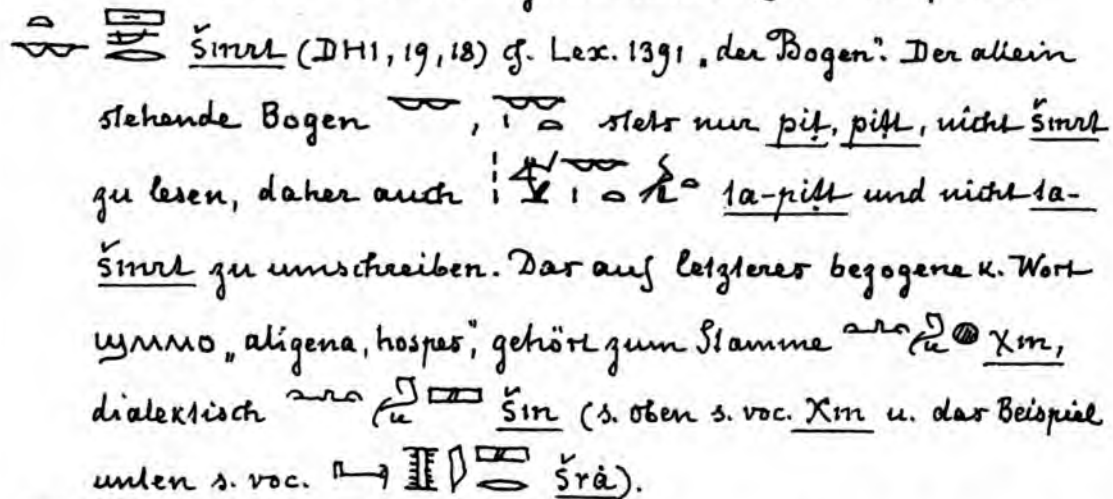 šmrt (DHI, 19, 18) cf. Lex. 1391 „der Bogen”. Der allein
stehende Bogen , stets nur pit, pitt, nicht šmrt
zu lesen, daher auch ta-pitt und nicht ta-
šmrt zu umschreiben. Das auf letzteres bezogene k. Wort
ϣⲙⲙⲟ „aligena, hospes”, gehört zum Stamme χm,
dialektisch šm (s. oben s. voc. χm u. das Beispiel
unten s. voc. šrȧ).